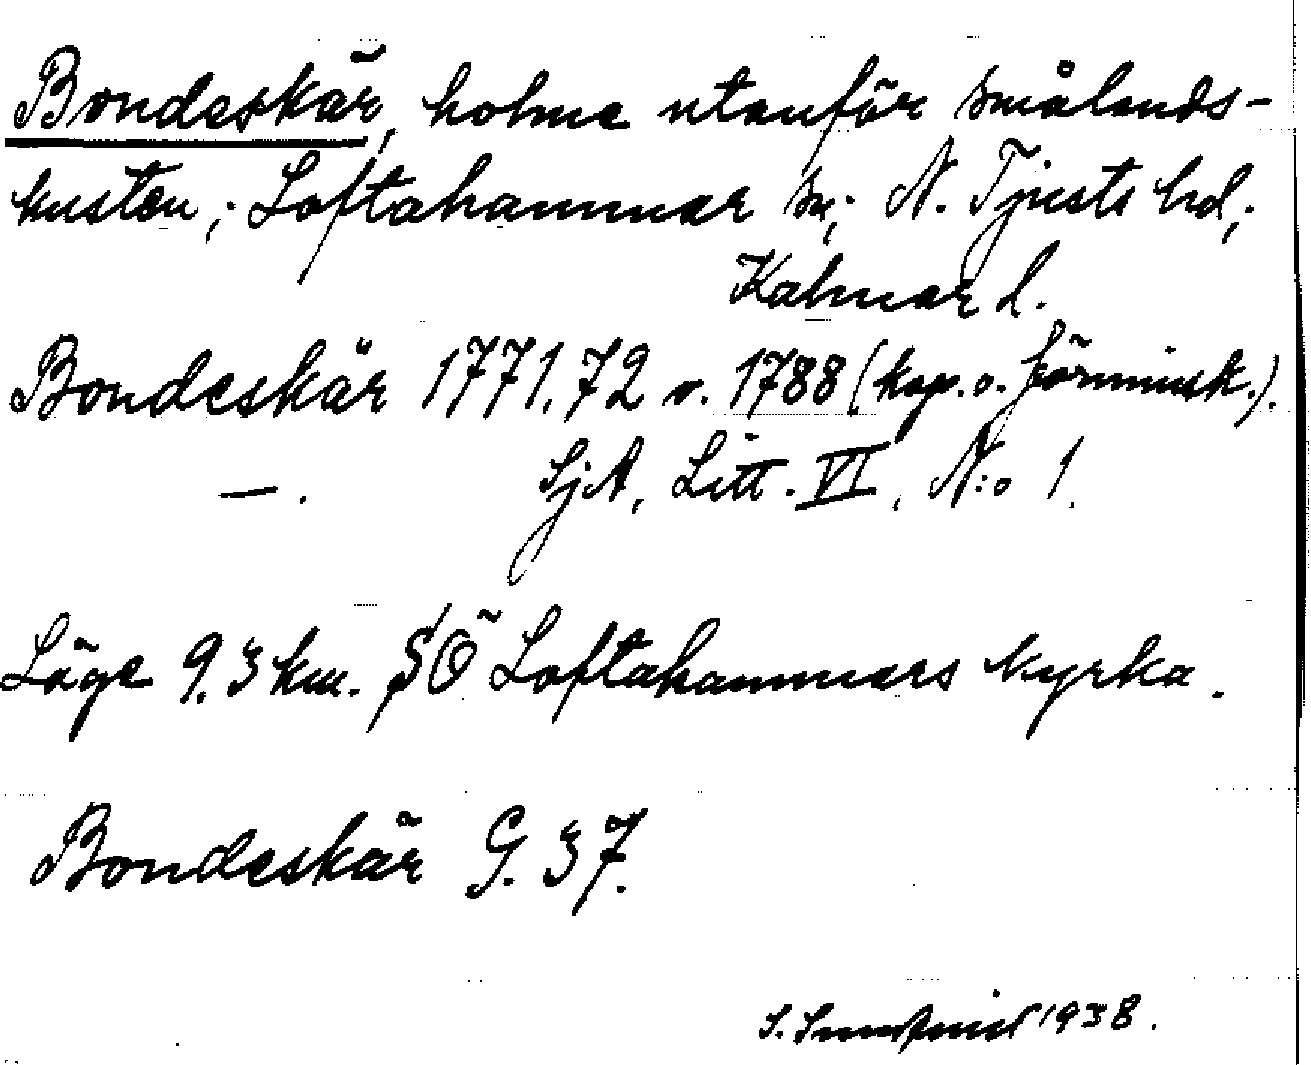 Bondeskär, holme utanför smålands-
kusten; Loftahammar sn; N. Tjusts hd;
Kalmar l.
Bondeskär 1771.72 o. 1788 (kap. o. förminsk.).
—. SjA, Litt. VI, N:o 1.
Läge 9.3 km. SÖ Loftahammars kyrka.
Bondeskär G. 37.
S. 1938.